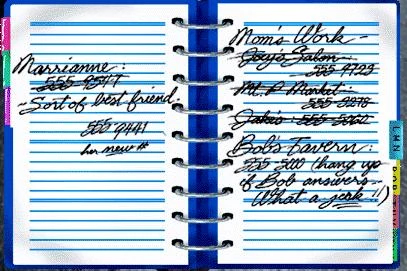 Marrianne:
555-9547
-Sort of best friend.
555-9441
her new #
Mom's Work -
Joey's Salon -
555-1723
Mt. P Market:
555-2278
Jake's: 555-5060
Bob's Tavern:
555-5000 (hang up
if Bob answers -
What a jerk!!)
LMN